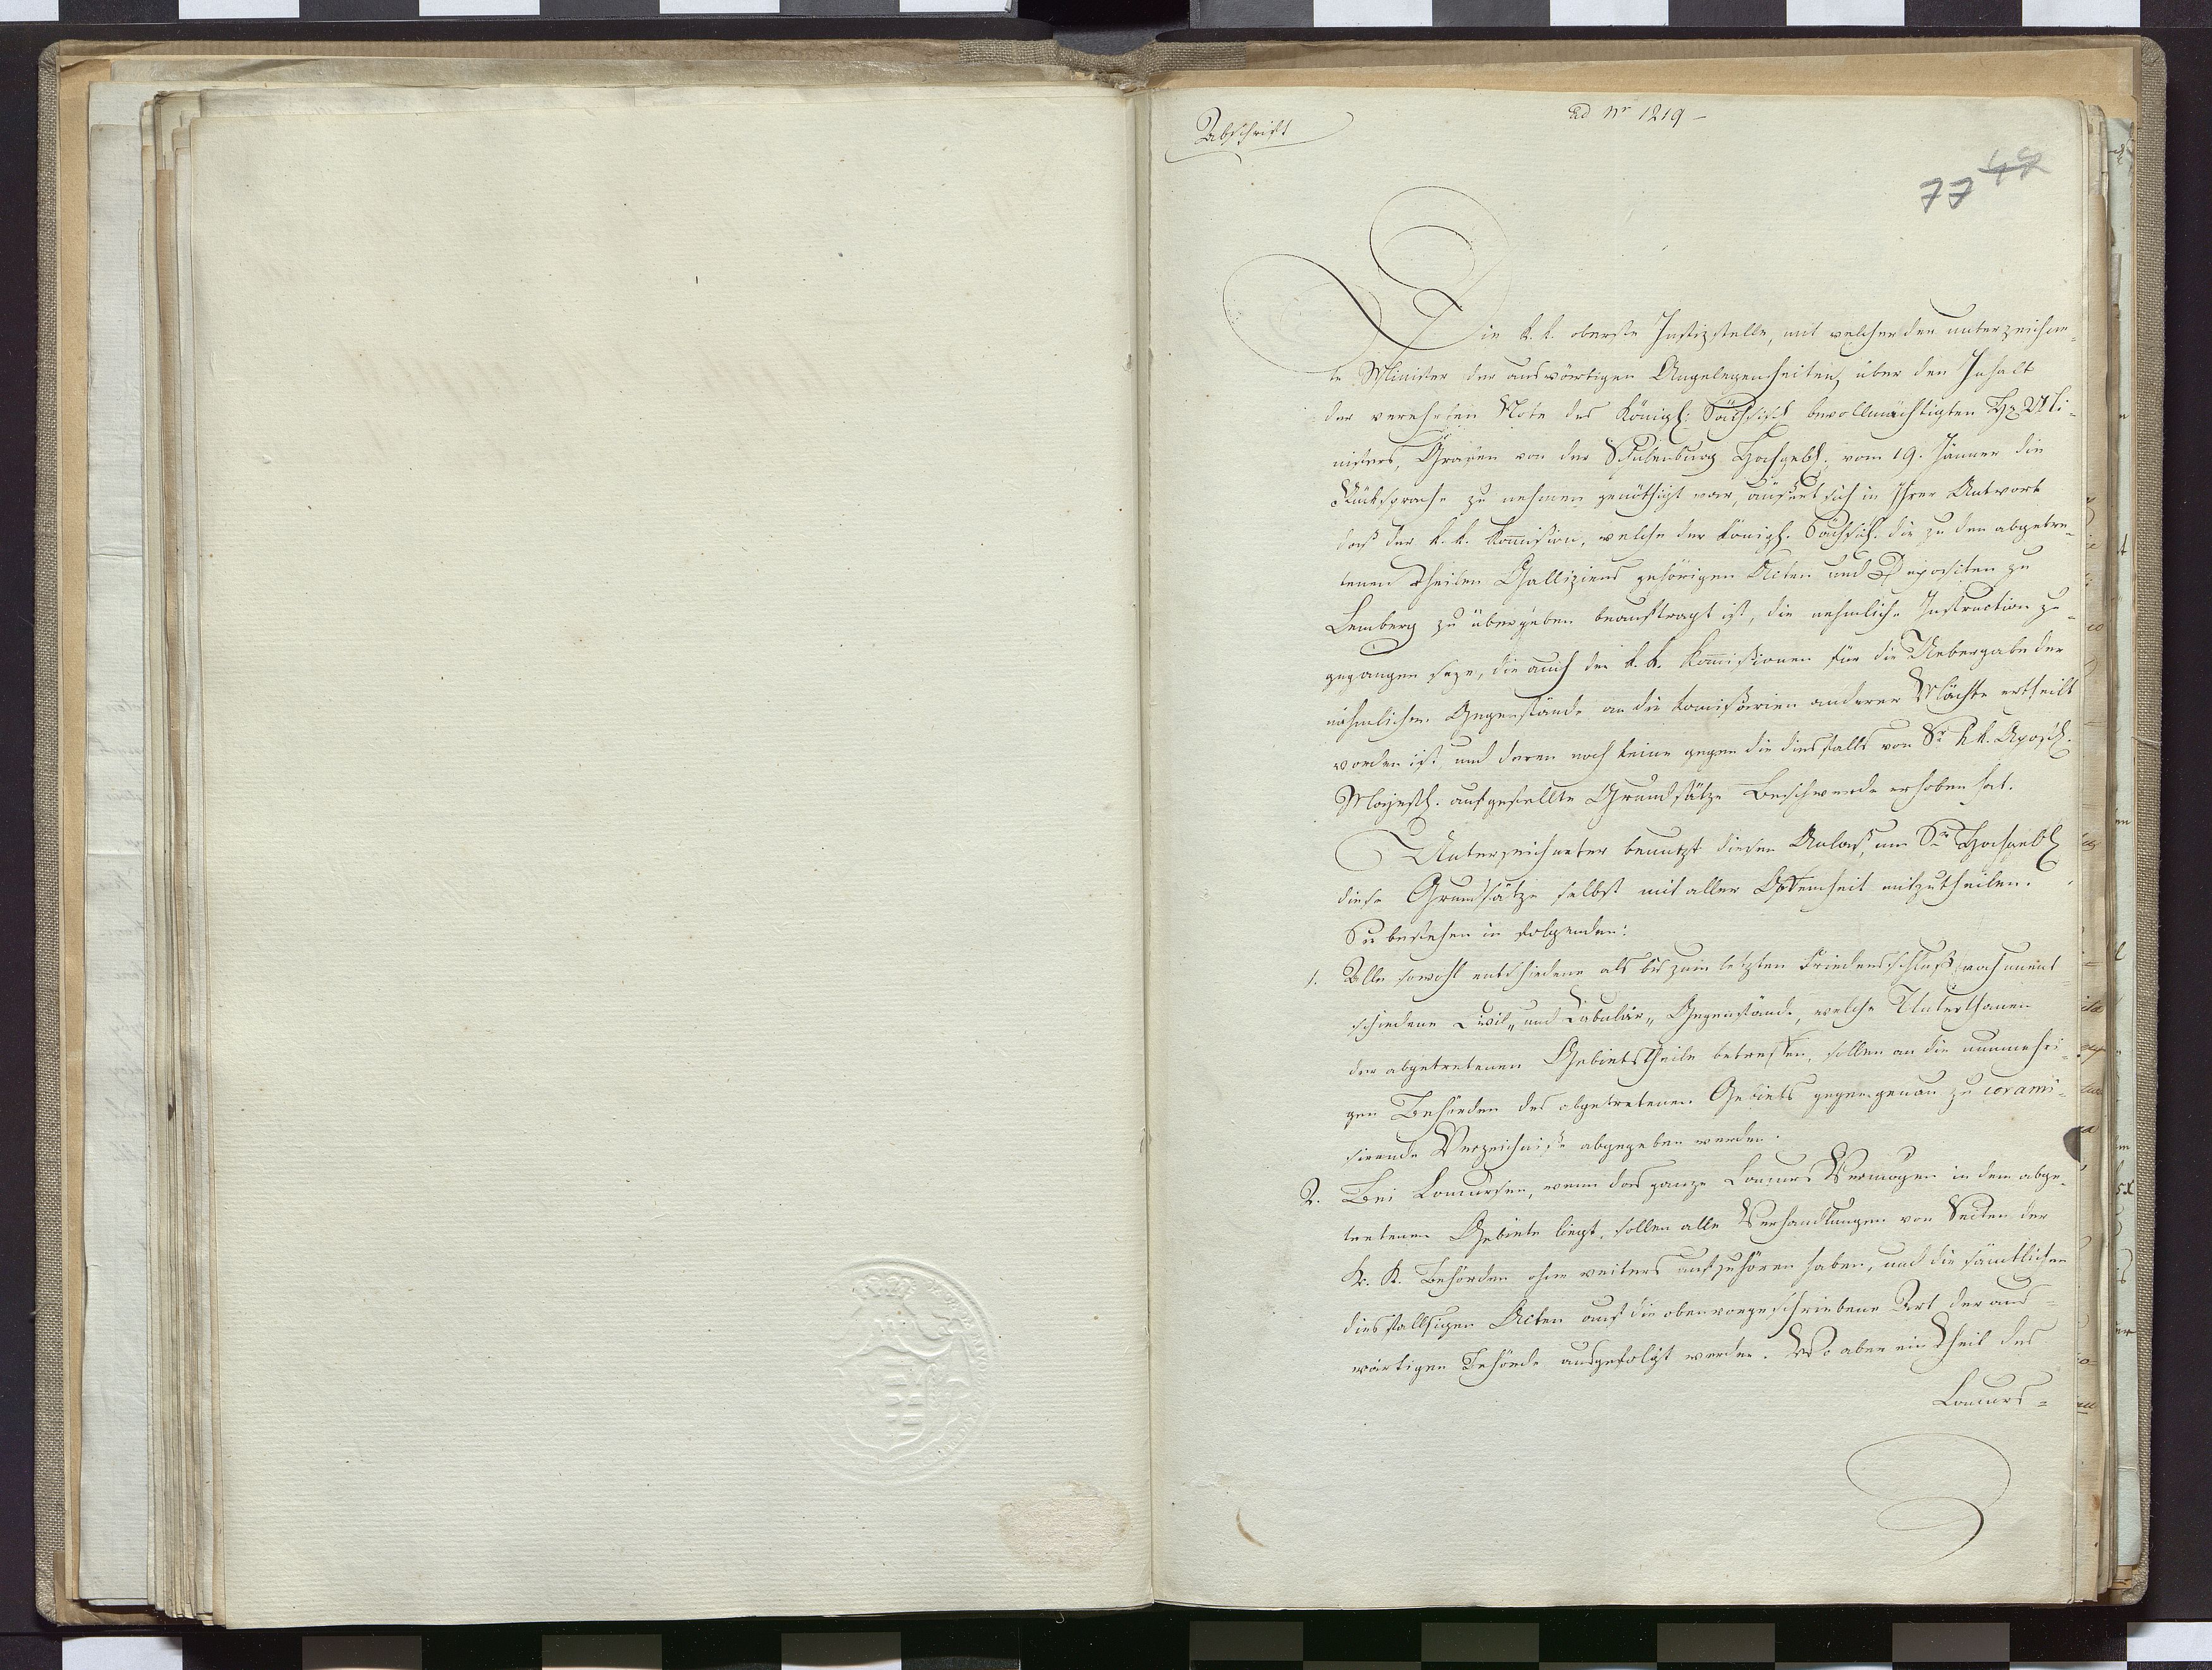 Abschrift
ad Nr 1219 –
47
77
Die k. k. oberste Justizstelle, mit welcher der unterzeichne-
te Minister der auswärtigen Angelegenheiten, über den Inhalt
der verehrten Note des Königl: Sächsisch bevollmächtigten H. Mi-
nisters, Grafen von der Schulenburg Hochgeb. vom 19. Jänner die
Rücksprache zu nehmen genöthigt war, äußert sich in Ihrer Antwort
daß der k. k. Kom̄ißion, welche der Königl. Sächsisch. die zu den abgetre-
tenen Theilen Galliziens gehörigen Acten und Depositen zu
Lemberg zu übergeben beauftragt ist, die nehmliche Instruction zu-
gegangen seye, die auch den k. k. Kom̄ißionen für die Uebergabe der
nähmlichen Gegenstände an die Kom̄ißarien anderer Mächte ertheilt
worden ist, und deren noch keine gegen die diesfalls von Sr k. k. Apost.
Majestt. aufgestellte Grundsätze Beschwerde erhoben hat.
Unterzeichneter benutzt diesen Anlaß, um Sr Hochgeb
diese Grundsätze selbst mit aller Offenheit mitzutheilen.
Sie bestehen in folgenden:
1. Alle sowohl entschiedene als bis zum letzten Friedensschluß noch unent-
schiedene Civil„ und Tabular„ Gegenstände, welche Unterthanen
der abgetretenen Gebietstheile betreffen, sollen an die nunmehri-
gen Behörden des abgetretenen Gebiets gegen genau zu corami-
sirende Verzeichniße abgegeben werden.
2. Bei Concursen, wenn das ganze Concurs Vermögen in dem abge-
tretenen Gebiete liegt, sollen alle Verhandlungen von Seiten der
K. K. Behörden ohne weiters aufzuhören haben, und die sämtlichen
diesfallsigen Acten auf die oben vorgeschriebene Art der aus-
wärtigen Behörde ausgefolgt werden. Wo aber ein Theil des
Concurs-